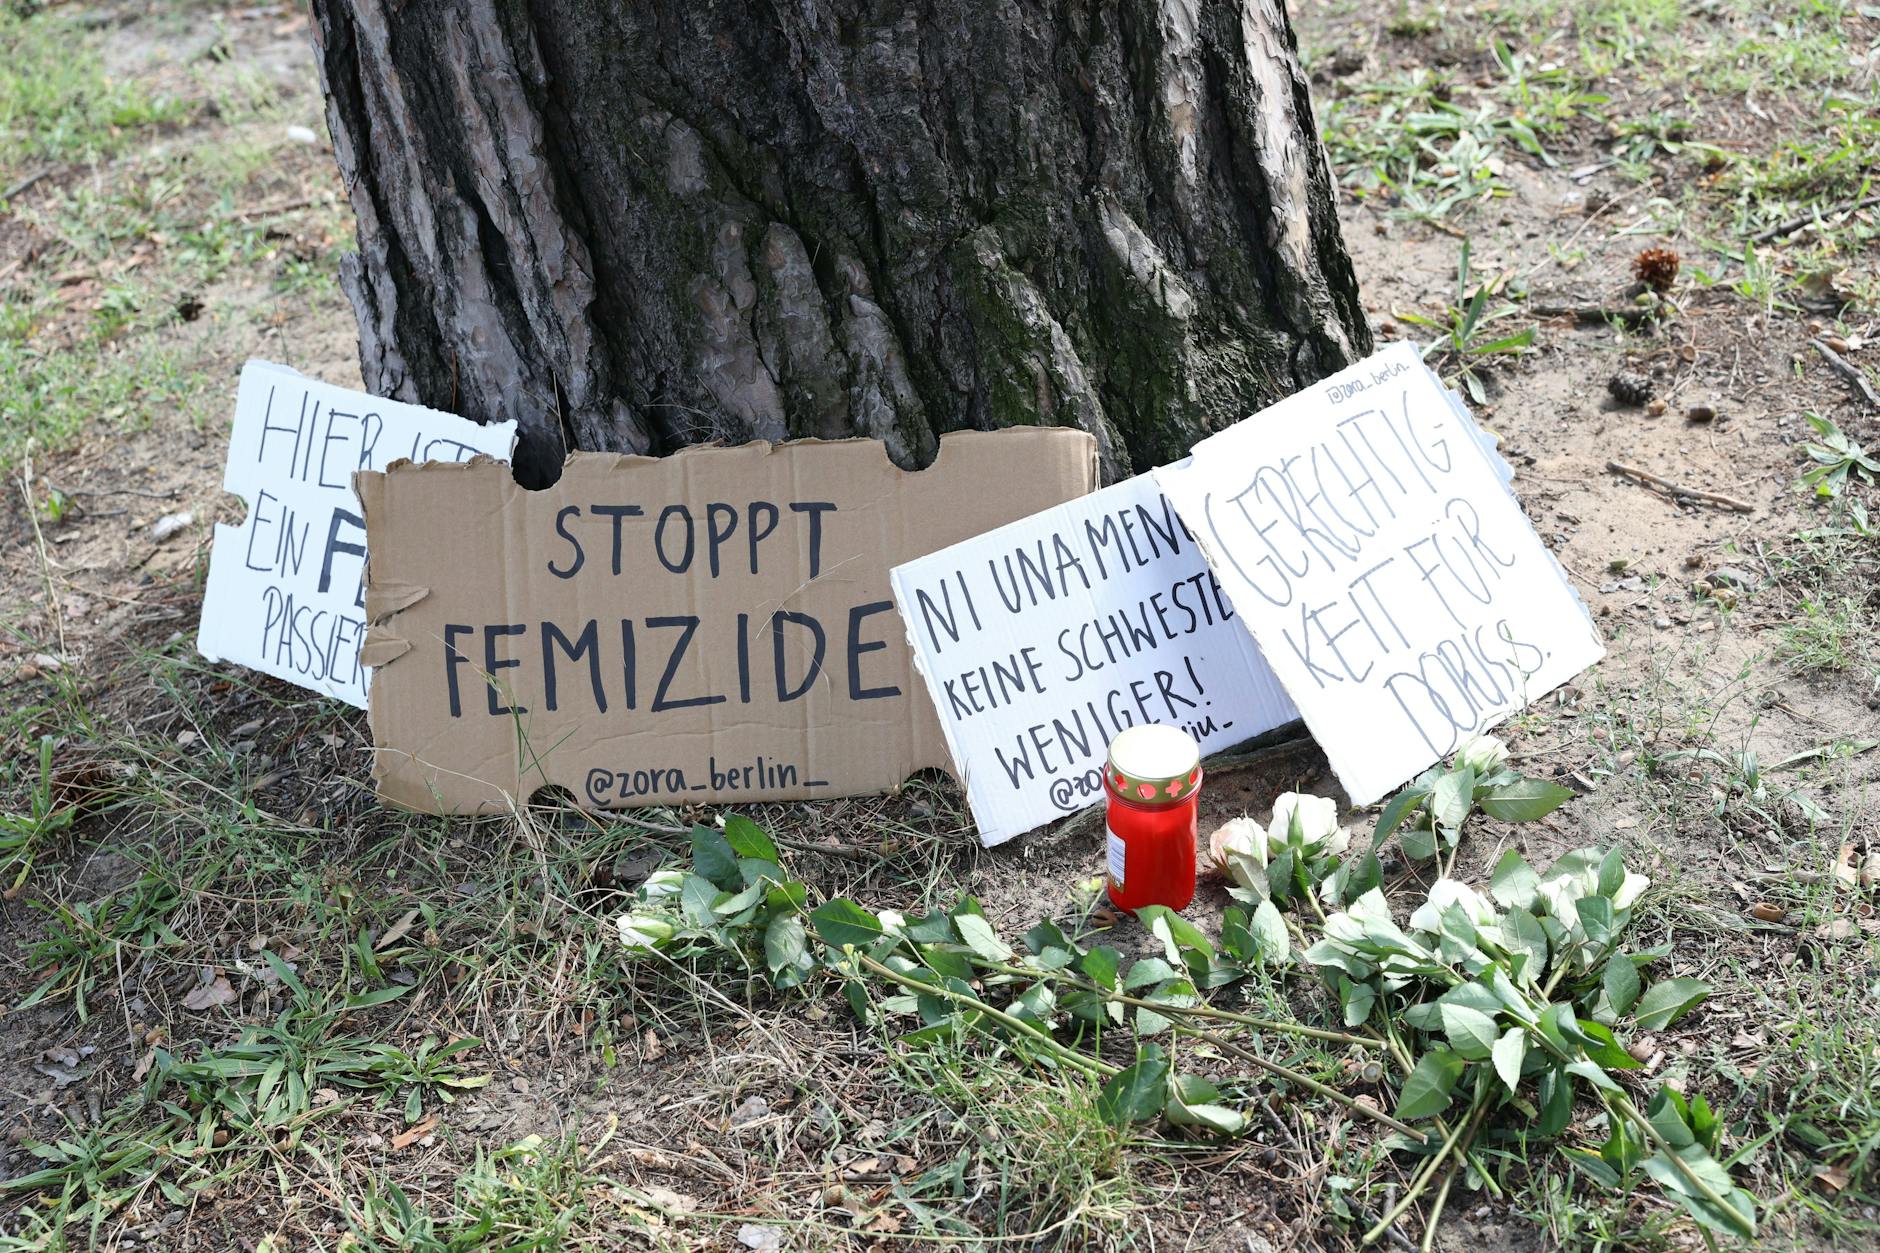 HIER IST
EIN
PASSIER
STOPPT
FEMIZIDE
@zora_berlin_
NI UNA MEN
KEINE SCHWESTE
WENIGER!
@zor
@zora_berlin_
GERECHTIG-
KEIT FÜR
DORIS S.